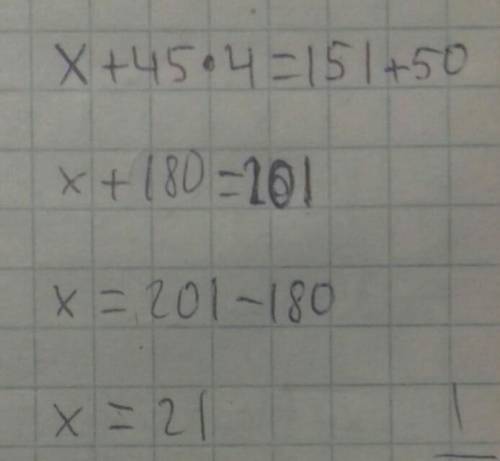 x+45·4=151+50
x+180=201
x=201-180
x=21
1